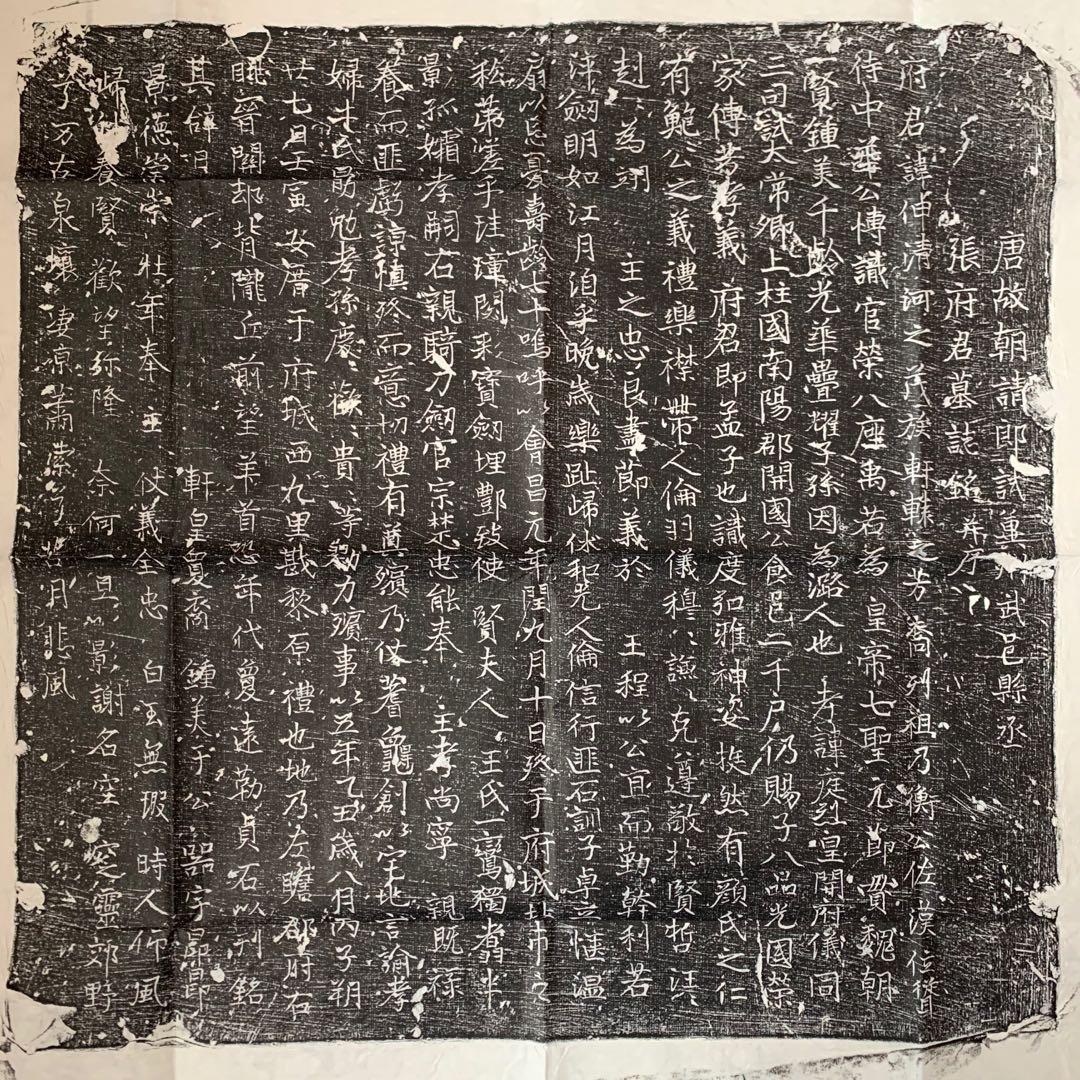 唐故朝請郎試重州武邑縣丞
張府君墓誌銘并序
府君諱伸清河之茂族軒轅之芳裔列祖乃衡公佐漢信讚
侍中華公博識官榮八座禹若為 皇帝七聖元節貫魏朝
一賢鍾美千齡光華疊耀子孫因為潞人也 考諱庭烈皇開府儀同
三司試太常卿上柱國南陽郡開國公食邑二千戶仍賜子八品光國榮
家傳芳存義 府君即孟子也識度弘雅神姿挺然有顏氏之仁
有鮑公之義禮樂襟帶人倫羽儀穆〻謙〻克遵敬於賢哲
赳〻為 主之忠良盡節義於 王程以公宜而勤幹利若
泮劒明如江月洎乎晚歲樂趾歸休和光人倫信行匪石訓子卓立愜溫
扇以忘憂壽齡七十嗚呼以會昌元年閏九月十日終于府城北市之
私第溘乎珪璋闕彩寶劒埋酆致使 賢夫人王氏一鸞獨翥半
影孤孀孝嗣右親騎刀劒官宗楚忠能奉 主孝尚寧 親既祿
養而匪虧諒禎終而意切禮有奠殯乃仗蓍龜創以宅地言諭孝
婦牛氏勗勉孝孫慶〻 貴〻等勠力殯事以五年乙丑歲八月丙子朔
廿七日壬寅安厝于府城西九里戡黎原禮也地乃左瞻郡府右
眺晉關却背隴丘前望羊首恐年代敻遠勒貞石以刊銘
其辞曰 軒皇敻裔 鍾美于公 器宇昂昂
景德崇崇 壯年奉主 仗義全忠 白玉無瑕 時人仰風
歸 養賢 歡望弥隆 奈何一旦 影謝名空 窆靈郊野
于万古泉壤凄凉蕭索兮苦月悲風